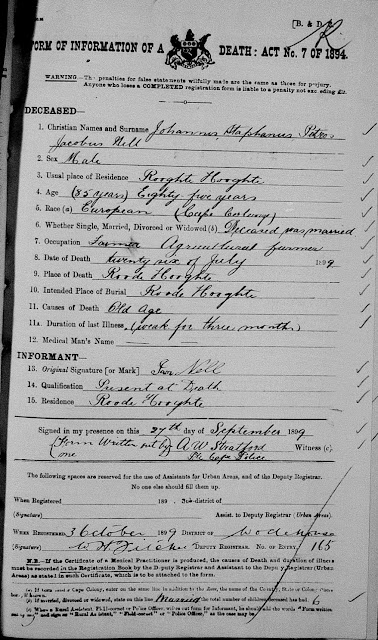 [B. & D.]
FORM OF INFORMATION OF A DEATH: ACT No. 7 OF 1894.
WARNING—The penalties for false statements wilfully made are the same as those for perjury.
Anyone who loses a COMPLETED registration form is liable to a penalty not exceeding
DECEASED—
1. Christian Names and Surname Johannes Stephanus Petrus
Jacobus Nell
2. Sex Male
3. Usual place of Residence Rooghte Hooghte
4. Age (85 years) Eighty five years
5. Race (a) European (Cape Colony)
6. Whether Single, Married, Divorced or Widowed (b) Deceased was married
7. Occupation Farmer Agricultural farmer
8. Date of Death twenty six of July 1899
9. Place of Death Roode Hooghte
10. Intended Place of Burial Roode Hooghte
11. Causes of Death Old Age
11a. Duration of last Illness (weak for three months)
12. Medical Man's Name
INFORMANT—
13. Original Signature [or Mark] Nell
14. Qualification Present at Death
15. Residence Roode Hooghte
Signed in my presence on this 27th day of September 1899
(Form Written out by me) A W Stratford Witness (c).
Pte Cape Police
The following spaces are reserved for the use of Assistants for Urban Areas, and of the Deputy Registrar.
No one else should fill them up.
When Registered 189 . Sub-district of
(Signature) Assist. to Deputy Registrar (Urban Areas)
WHEN REGISTERED 3 October 1899 DISTRICT OF Wodehouse
(Signature) DEPUTY REGISTRAR. NO. OF ENTRY, 165
N.B.—If the Certificate of a Medical Practitioner is produced, the causes of Death and duration of illness
must be recorded in the Registration Book by the Deputy Registrar and Assistants to the Deputy Registrar (Urban
Areas) as stated in such Certificate, which is to be attached to the form.
(a) If born out of Cape Colony, enter on this line in addition to the race, the name of the Country, State or Colony
(b) If married, divorced or widowed, state on this line number of children deceased has had 6
(c) When a Rural Assistant, Field-cornet or Police Officer, writes out form for Informant, he should add the words "Form written
by me" and sign as "Rural Assistant," "Field-cornet" or "Police Officer," as the case may be.